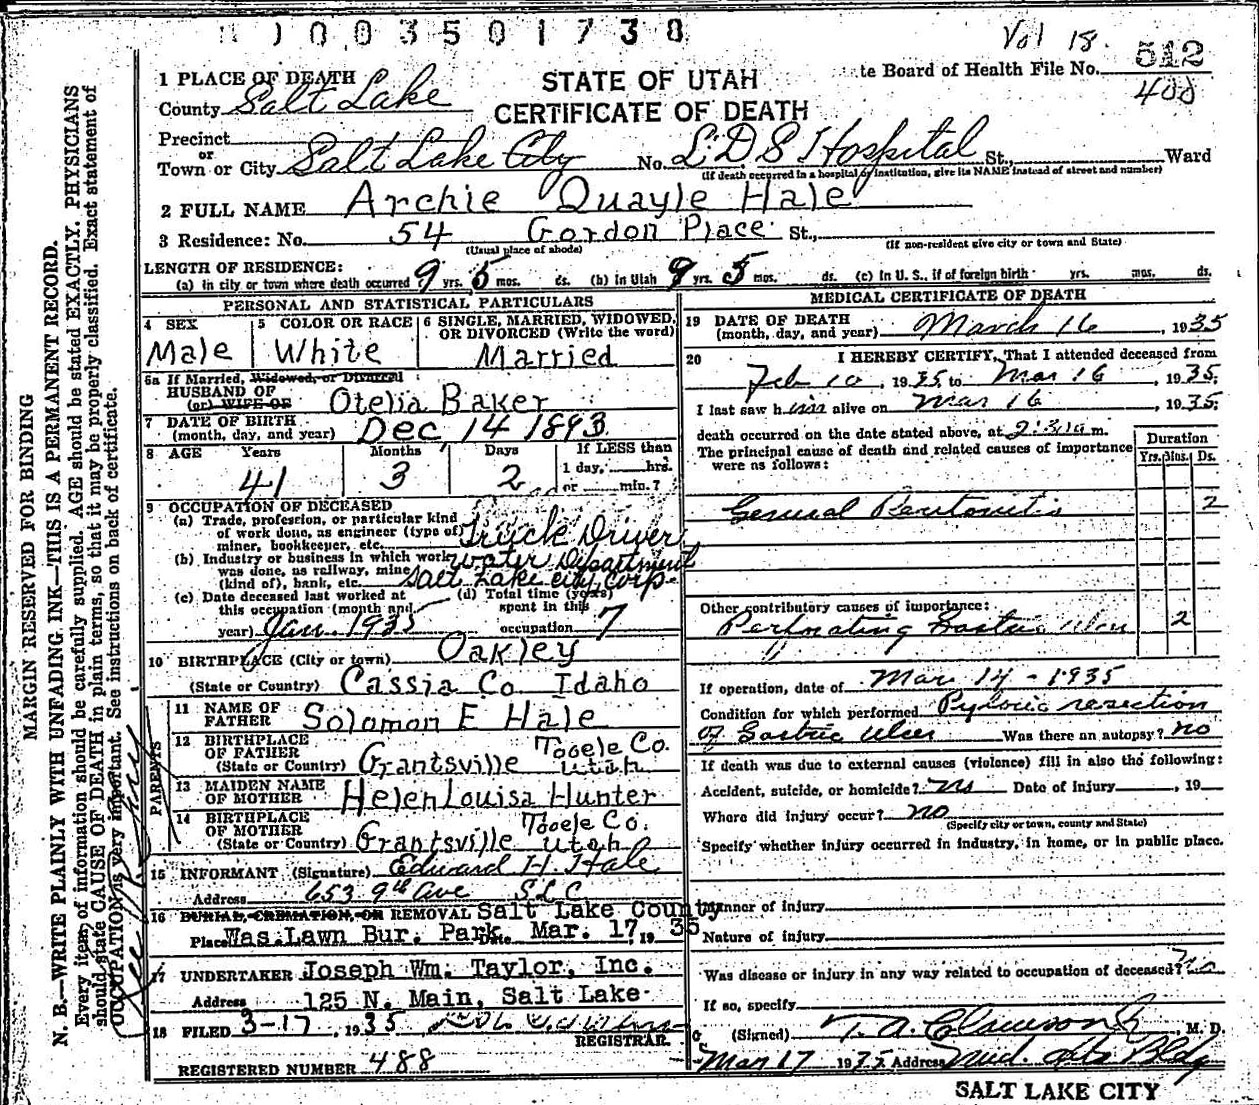 0 0 3 5 0 1 7 3 8
Vol 18.
STATE OF UTAH
CERTIFICATE OF DEATH
te Board of Health File No. 512
400
1 PLACE OF DEATH
County Salt Lake
Precinct
or
Town or City Salt Lake City No. L.D.S Hospital St., Ward
(If death occurred in a hospital or institution, give its NAME instead of street and number)
2 FULL NAME Archie Quayle Hale
3 Residence: No. 54 Gordon Place St.,
(Usual place of abode) (If non-resident give city or town and State)
LENGTH OF RESIDENCE:
(a) In city or town where death occurred 9 yrs. 5 mos. ds. (b) In Utah 9 yrs. 5 mos. ds. (c) In U. S., if of foreign birth yrs. mos. ds.
PERSONAL AND STATISTICAL PARTICULARS
4 SEX
Male
5 COLOR OR RACE
White
6 SINGLE, MARRIED, WIDOWED, OR DIVORCED (Write the word)
Married
6a If Married, Widowed, or Divorced
HUSBAND OF
(or) WIFE OF Otelia Baker
7 DATE OF BIRTH
(month, day, and year) Dec 14 1893
8 AGE Years Months Days If LESS than
1 day, hrs.
or min. ?
41 3 2
9 OCCUPATION OF DECEASED
(a) Trade, profession, or particular kind
of work done, as engineer (type of)
miner, bookkeeper, etc. Truck Driver
(b) Industry or business in which work
was done, as railway, mine
(kind of), bank, etc. Water Department
Salt Lake City Corp.
(c) Date deceased last worked at
this occupation (month and
year) Jan. 1935
(d) Total time (years)
spent in this
occupation 7
10 BIRTHPLACE (City or town) Oakley
(State or Country) Cassia Co Idaho
PARENTS
11 NAME OF
FATHER Solomon E Hale
12 BIRTHPLACE
OF FATHER
(State or Country) Grantsville Tooele Co. Utah
13 MAIDEN NAME
OF MOTHER Helen Louisa Hunter
14 BIRTHPLACE
OF MOTHER
(State or Country) Grantsville Tooele Co. Utah
15 INFORMANT (Signature) Edward H. Hale
Address 653 9th Ave S.L.C.
16 BURIAL, CREMATION, OR REMOVAL Salt Lake County
Place Was. Lawn Bur. Park. Date Mar. 17, 19 35
17 UNDERTAKER Joseph Wm. Taylor, Inc.
Address 125 N. Main, Salt Lake
18 FILED 3-17, 1935
REGISTRAR.
REGISTERED NUMBER 488
MEDICAL CERTIFICATE OF DEATH
19 DATE OF DEATH
(month, day, and year) March 16, 1935
20 I HEREBY CERTIFY, That I attended deceased from
Feb 10, 1935, to Mar 16, 1935,
I last saw him alive on Mar 16, 1935,
death occurred on the date stated above, at m.
The principal cause of death and related causes of importance
were as follows:
Duration
Yrs. Mos. Ds.
General Peritonitis 2
Other contributory causes of importance:
Perforating Gastric Ulcer 2
If operation, date of Mar 14 - 1935
Condition for which performed Pyloric resection
of Gastric Ulcer Was there an autopsy? no
If death was due to external causes (violence) fill in also the following:
Accident, suicide, or homicide? no Date of injury , 19
Where did injury occur? no
(Specify city or town, county and State)
Specify whether injury occurred in industry, in home, or in public place.
Manner of injury
Nature of injury
Was disease or injury in any way related to occupation of deceased? No
If so, specify
(Signed) T. A. Clawson Jr, M. D.
Mar 17 1935 Address Med. Arts Bldg
SALT LAKE CITY
MARGIN RESERVED FOR BINDING
N. B.—WRITE PLAINLY WITH UNFADING INK—THIS IS A PERMANENT RECORD.
Every item of information should be carefully supplied. AGE should be stated EXACTLY. PHYSICIANS
should state CAUSE OF DEATH in plain terms, so that it may be properly classified. Exact statement of
OCCUPATION is very important. See instructions on back of certificate.